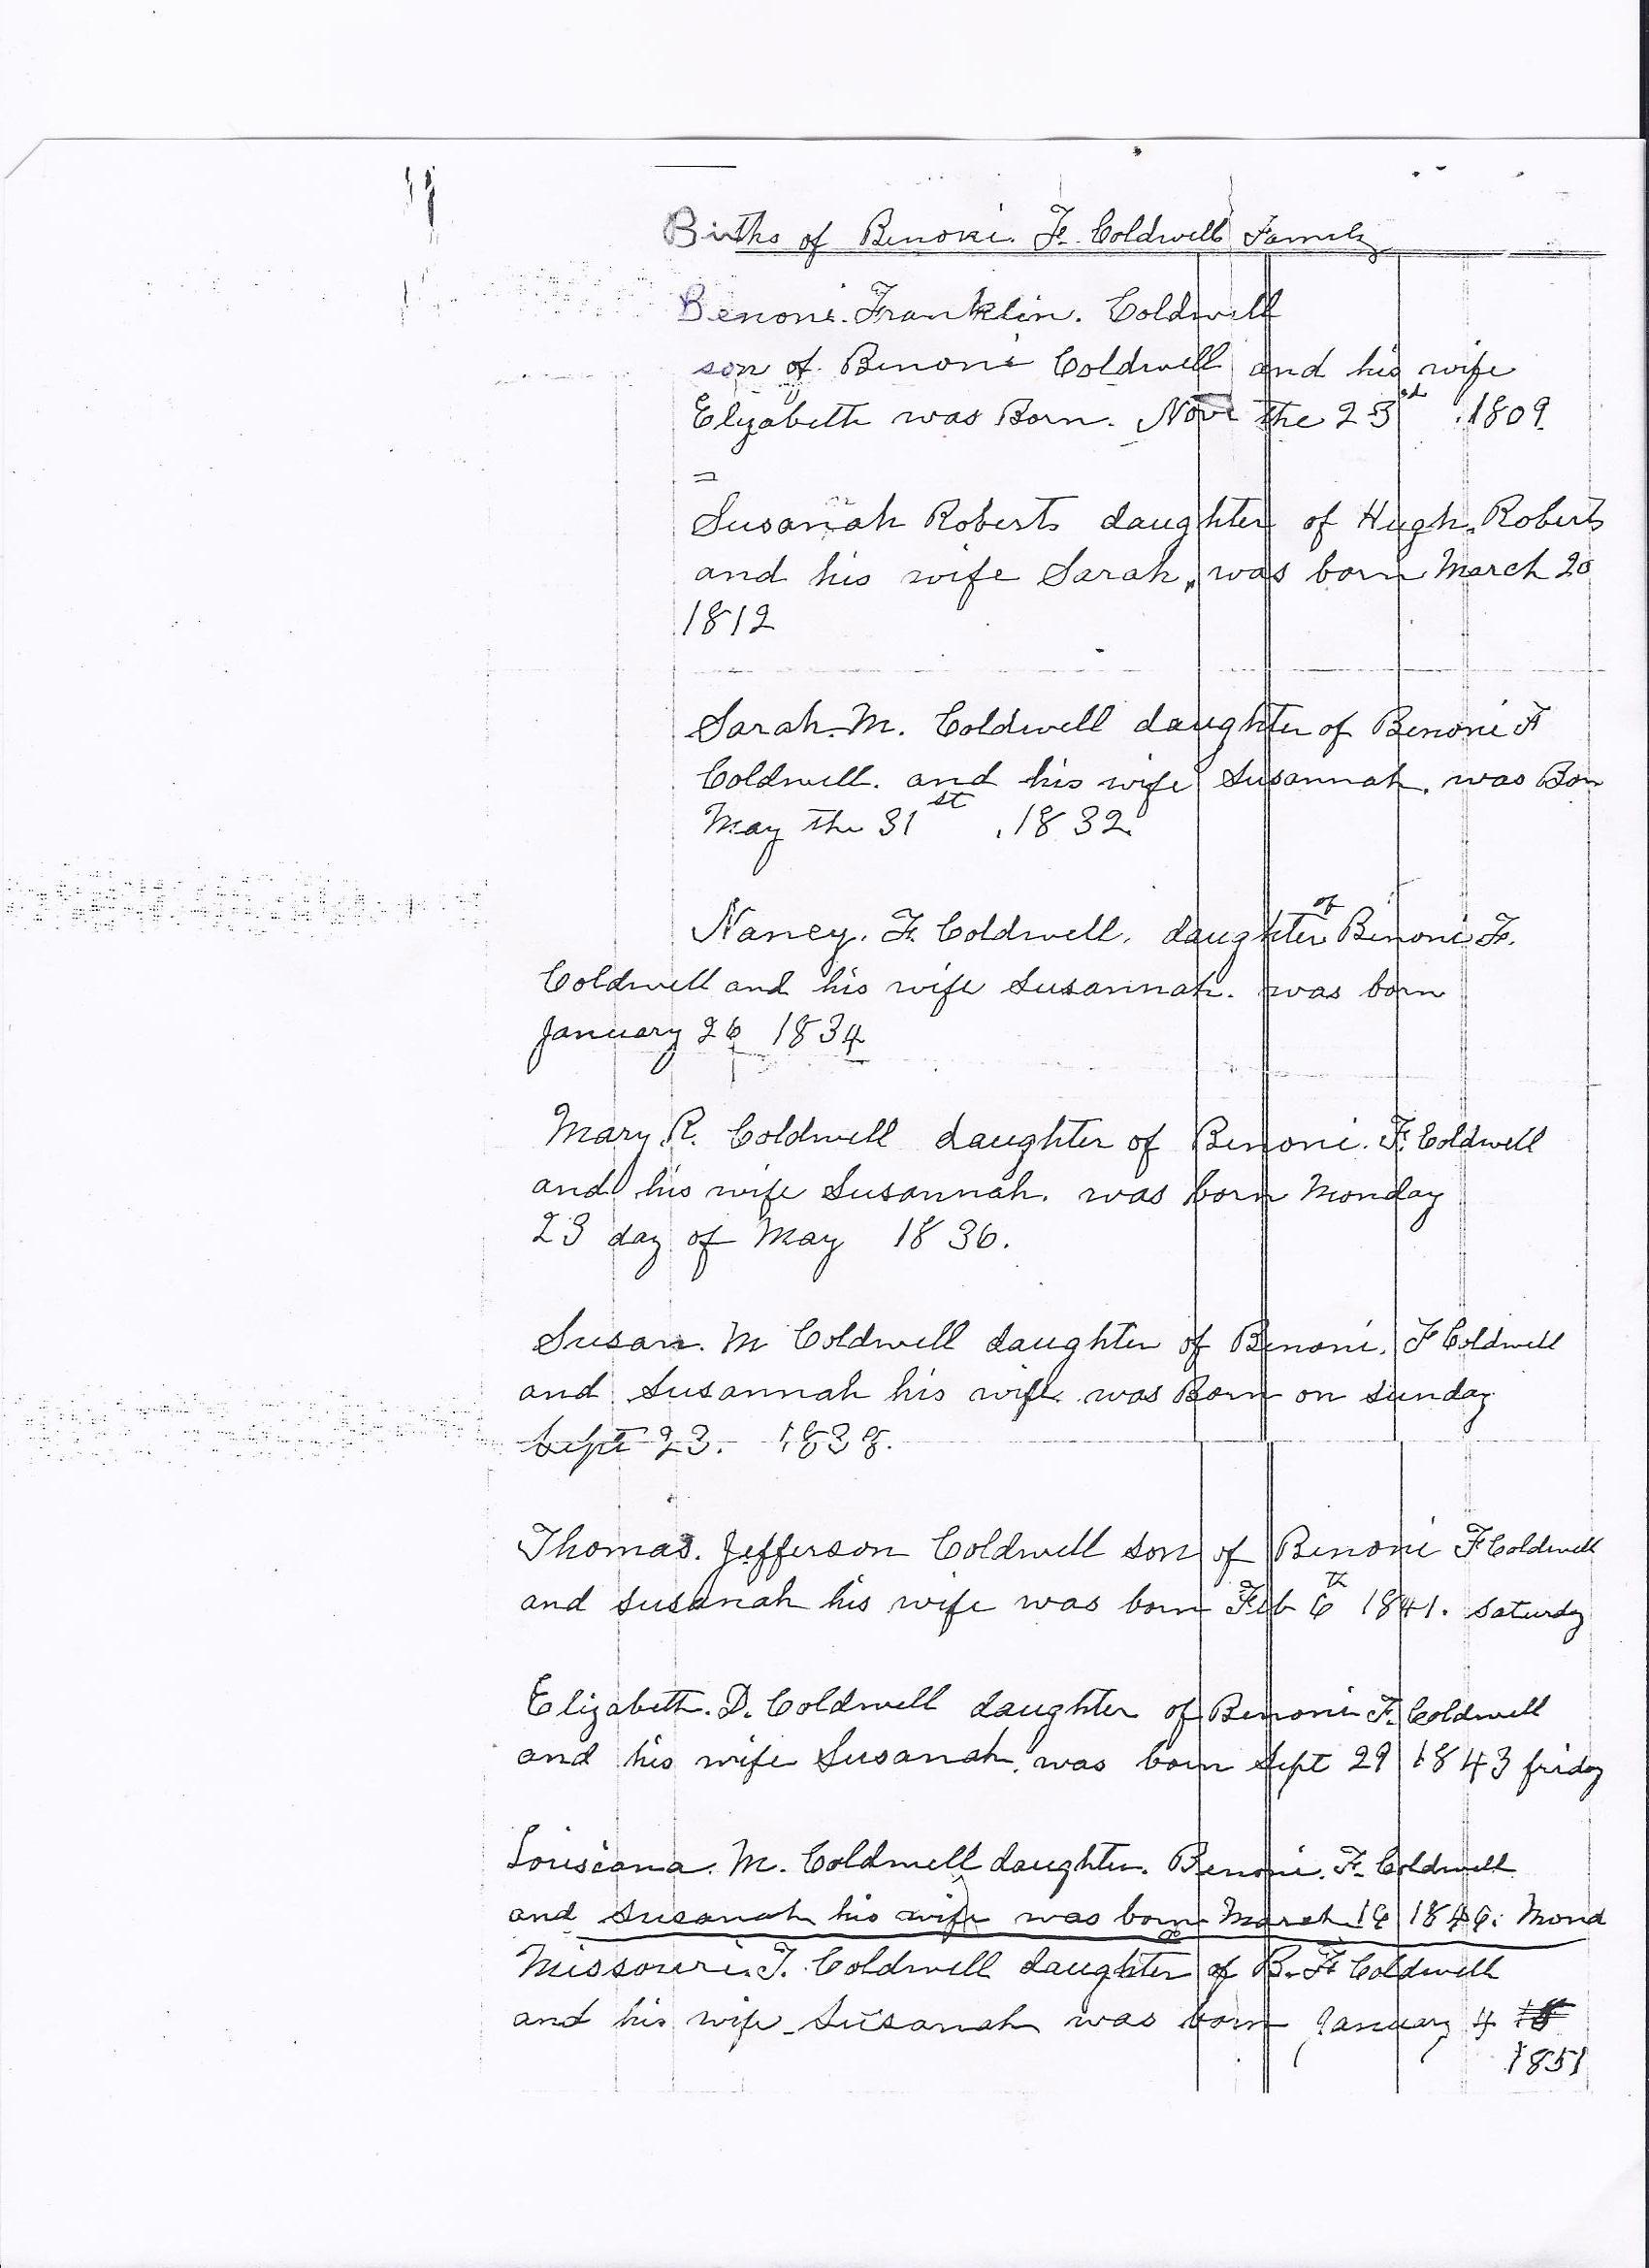 Births of Benoni. F. Coldwells Family
Benoni. Franklin. Coldwell
son of Benoni Coldwell and his wife
Elizabeth was Born. Nov the 23rd .1809.
Susanah Roberts daughter of Hugh. Roberts
and his wife Sarah, was born March 20
1812
Sarah. M. Coldwell daughter of Benoni F
Coldwell. and his wife Susannah. was Born
May the 31st .1832.
Nancy. F. Coldwell. daughter of Benoni F.
Coldwell and his wife Susannah. was born
January 26 1834
Mary R. Coldwell daughter of Benoni. F. Coldwell
and his wife Susannah. was born Monday
23 day of May 1836.
Susan. M Coldwell daughter of Benoni. F Coldwell
and Susannah his wife was Born on sunday
Sept 23. 1838.
Thomas. Jefferson Coldwell son of Benoni F Coldwell
and susanah his wife was born Feb 6th 1841. saturday
Elizabeth. D. Coldwell daughter of Benoni F. Coldwell
and his wife Susanah. was born Sept 29 1843 friday
Louisiana. M. Coldwell daughter. Benoni. F. Coldwell
and susanah his wife was born March 16 1846. Mond
Missouri. J. Coldwell daughter of B. F Coldwell
and his wife Susanah was born January 4
1851